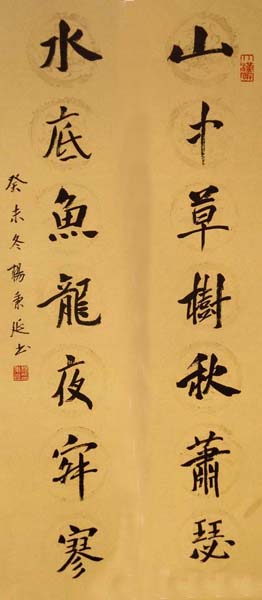 山中草樹秋蕭瑟
水底魚龍夜寂寥
癸未冬楊秉延书